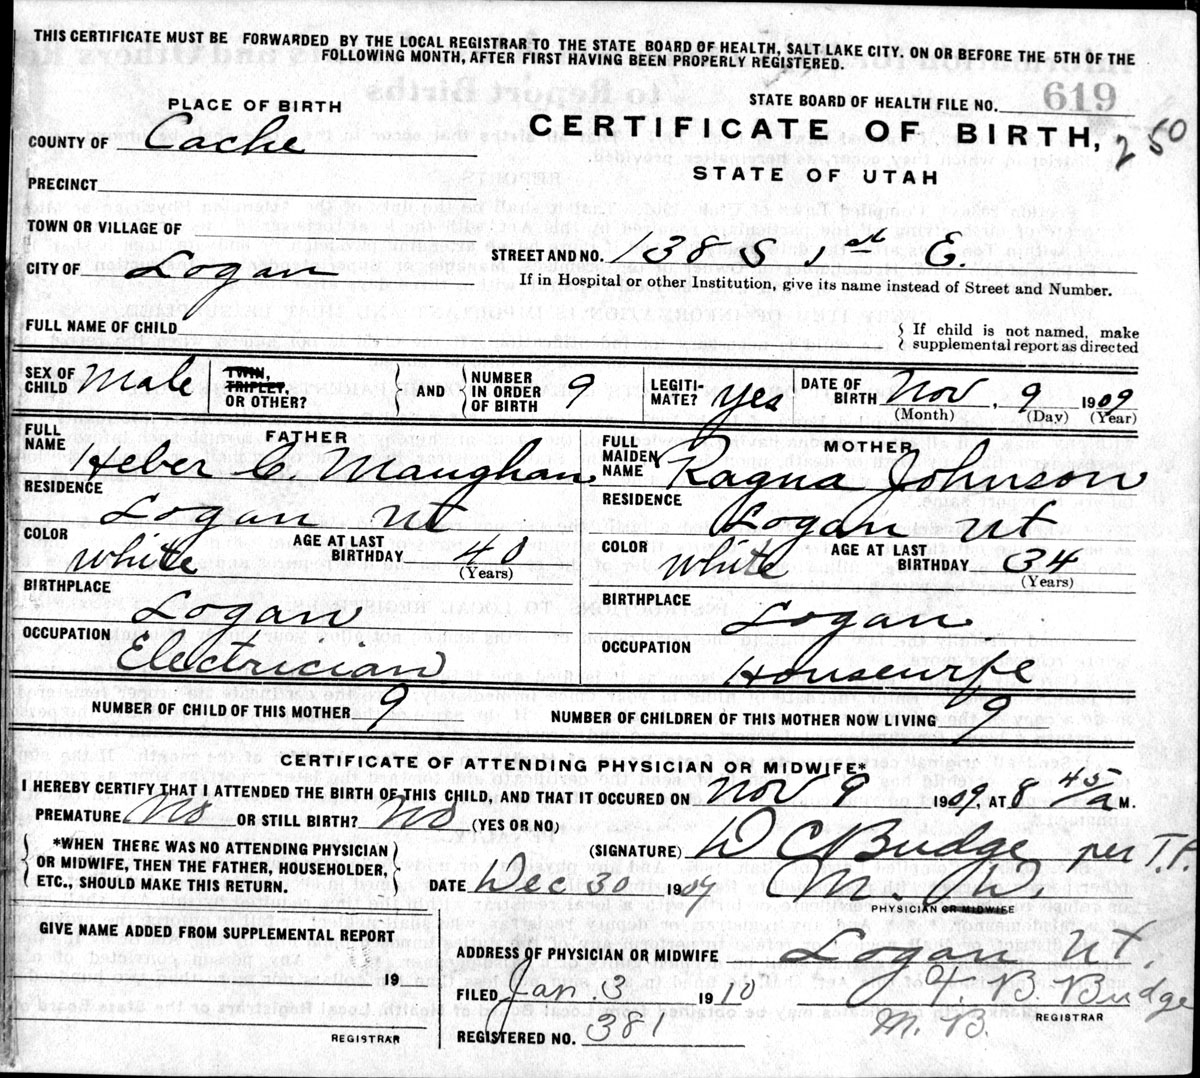 THIS CERTIFICATE MUST BE FORWARDED BY THE LOCAL REGISTRAR TO THE STATE BOARD OF HEALTH, SALT LAKE CITY, ON OR BEFORE THE 5TH OF THE
FOLLOWING MONTH, AFTER FIRST HAVING BEEN PROPERLY REGISTERED.
PLACE OF BIRTH
STATE BOARD OF HEALTH FILE NO. 619
COUNTY OF Cache
CERTIFICATE OF BIRTH, 250
PRECINCT
STATE OF UTAH
TOWN OR VILLAGE OF
CITY OF Logan
STREET AND NO. 138 S 1st E.
If in Hospital or other Institution, give its name instead of Street and Number.
FULL NAME OF CHILD
If child is not named, make
supplemental report as directed
SEX OF CHILD Male
TWIN, TRIPLET, OR OTHER?
AND
NUMBER IN ORDER OF BIRTH 9
LEGITIMATE? yes
DATE OF BIRTH Nov, 9 1909
(Month) (Day) (Year)
FATHER
FULL NAME Heber C. Maughan
RESIDENCE Logan Ut
COLOR White
AGE AT LAST BIRTHDAY 40
(Years)
BIRTHPLACE Logan
OCCUPATION Electrician
MOTHER
FULL MAIDEN NAME Ragna Johnson
RESIDENCE Logan Ut
COLOR White
AGE AT LAST BIRTHDAY 34
(Years)
BIRTHPLACE Logan
OCCUPATION Housewife
NUMBER OF CHILD OF THIS MOTHER 9
NUMBER OF CHILDREN OF THIS MOTHER NOW LIVING 9
CERTIFICATE OF ATTENDING PHYSICIAN OR MIDWIFE*
I HEREBY CERTIFY THAT I ATTENDED THE BIRTH OF THIS CHILD, AND THAT IT OCCURED ON Nov 9 1909, AT 8 45/a M.
PREMATURE No OR STILL BIRTH? No (YES OR NO)
*WHEN THERE WAS NO ATTENDING PHYSICIAN
OR MIDWIFE, THEN THE FATHER, HOUSEHOLDER,
ETC., SHOULD MAKE THIS RETURN.
(SIGNATURE) D C Budge per T.P.
DATE Dec 30 1909
PHYSICIAN OR MIDWIFE
GIVE NAME ADDED FROM SUPPLEMENTAL REPORT
ADDRESS OF PHYSICIAN OR MIDWIFE Logan Ut,
19
REGISTRAR
FILED Jan. 3 1910
B. Budge
REGISTRAR
M. B.
REGISTERED NO. 381